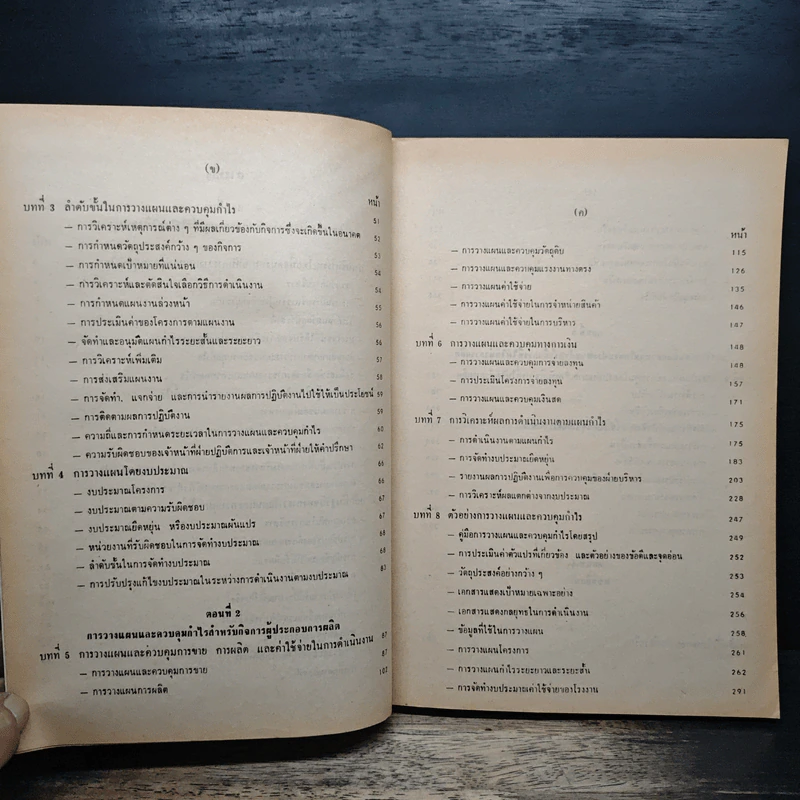 (ข)
หน้า
บทที่ 3 ลำดับขั้นในการวางแผนและควบคุมกำไร 51
— การวิเคราะห์เหตุการณ์ต่าง ๆ ที่มีผลเกี่ยวข้องกับกิจการซึ่งจะเกิดขึ้นในอนาคต 52
— การกำหนดวัตถุประสงค์กว้าง ๆ ของกิจการ 53
— การกำหนดเป้าหมายที่แน่นอน 54
— การวิเคราะห์และตัดสินใจเลือกวิธีการดำเนินงาน 54
— การกำหนดแผนงานล่วงหน้า 55
— การประเมินค่าของโครงการตามแผนงาน 56
— จัดทำและอนุมัติแผนกำไรระยะสั้นและระยะยาว 56
— การวิเคราะห์เพิ่มเติม 57
— การส่งเสริมแผนงาน 58
— การจัดทำ, แจกจ่าย และการนำรายงานผลการปฏิบัติงานไปใช้ให้เป็นประโยชน์ 59
— การติดตามผลการปฏิบัติงาน 59
— ความถี่และการกำหนดระยะเวลาในการวางแผนและควบคุมกำไร 60
— ความรับผิดชอบของเจ้าหน้าที่ฝ่ายปฏิบัติการและเจ้าหน้าที่ฝ่ายให้คำปรึกษา 62
บทที่ 4 การวางแผนโดยงบประมาณ 66
— งบประมาณโครงการ 66
— งบประมาณตามความรับผิดชอบ 67
— งบประมาณยืดหยุ่น หรืองบประมาณผันแปร 67
— หน่วยงานที่รับผิดชอบในการจัดทำงบประมาณ 68
— ลำดับขั้นในการจัดทำงบประมาณ 68
— การปรับปรุงแก้ไขงบประมาณในระหว่างการดำเนินงานตามงบประมาณ 83
ตอนที่ 2
การวางแผนและควบคุมกำไรสำหรับกิจการผู้ประกอบการผลิต
บทที่ 5 การวางแผนและควบคุมการขาย การผลิต และค่าใช้จ่ายในการดำเนินงาน 87
— การวางแผนและควบคุมการขาย 87
— การวางแผนการผลิต 107
(ค)
หน้า
— การวางแผนและควบคุมวัตถุดิบ 115
— การวางแผนและควบคุมแรงงานทางตรง 126
— การวางแผนค่าใช้จ่าย 135
— การวางแผนค่าใช้จ่ายในการจำหน่ายสินค้า 146
— การวางแผนค่าใช้จ่ายในการบริหาร 147
บทที่ 6 การวางแผนและควบคุมทางการเงิน 148
— การวางแผนและควบคุมการจ่ายลงทุน 148
— การประเมินโครงการจ่ายลงทุน 157
— การวางแผนและควบคุมเงินสด 171
บทที่ 7 การวิเคราะห์ผลการดำเนินงานตามแผนกำไร 175
— การดำเนินงานตามแผนกำไร 175
— การจัดทำงบประมาณยืดหยุ่น 183
— รายงานผลการปฏิบัติงานเพื่อการควบคุมของฝ่ายบริหาร 203
— การวิเคราะห์ผลแตกต่างจากงบประมาณ 228
บทที่ 8 ตัวอย่างการวางแผนและควบคุมกำไร 247
— คู่มือการวางแผนและควบคุมกำไรโดยสรุป 249
— การประเมินค่าตัวแปรที่เกี่ยวข้อง และตัวอย่างของข้อดีและจุดอ่อน 252
— วัตถุประสงค์อย่างกว้าง ๆ 253
— เอกสารแสดงเป้าหมายเฉพาะอย่าง 254
— เอกสารแสดงกลยุทธในการดำเนินงาน 256
— ข้อมูลที่ใช้ในการวางแผน 258
— การวางแผนโครงการ 261
— การวางแผนกำไรระยะยาวและระยะสั้น 262
— การจัดทำงบประมาณค่าใช้จ่ายของโรงงาน 291